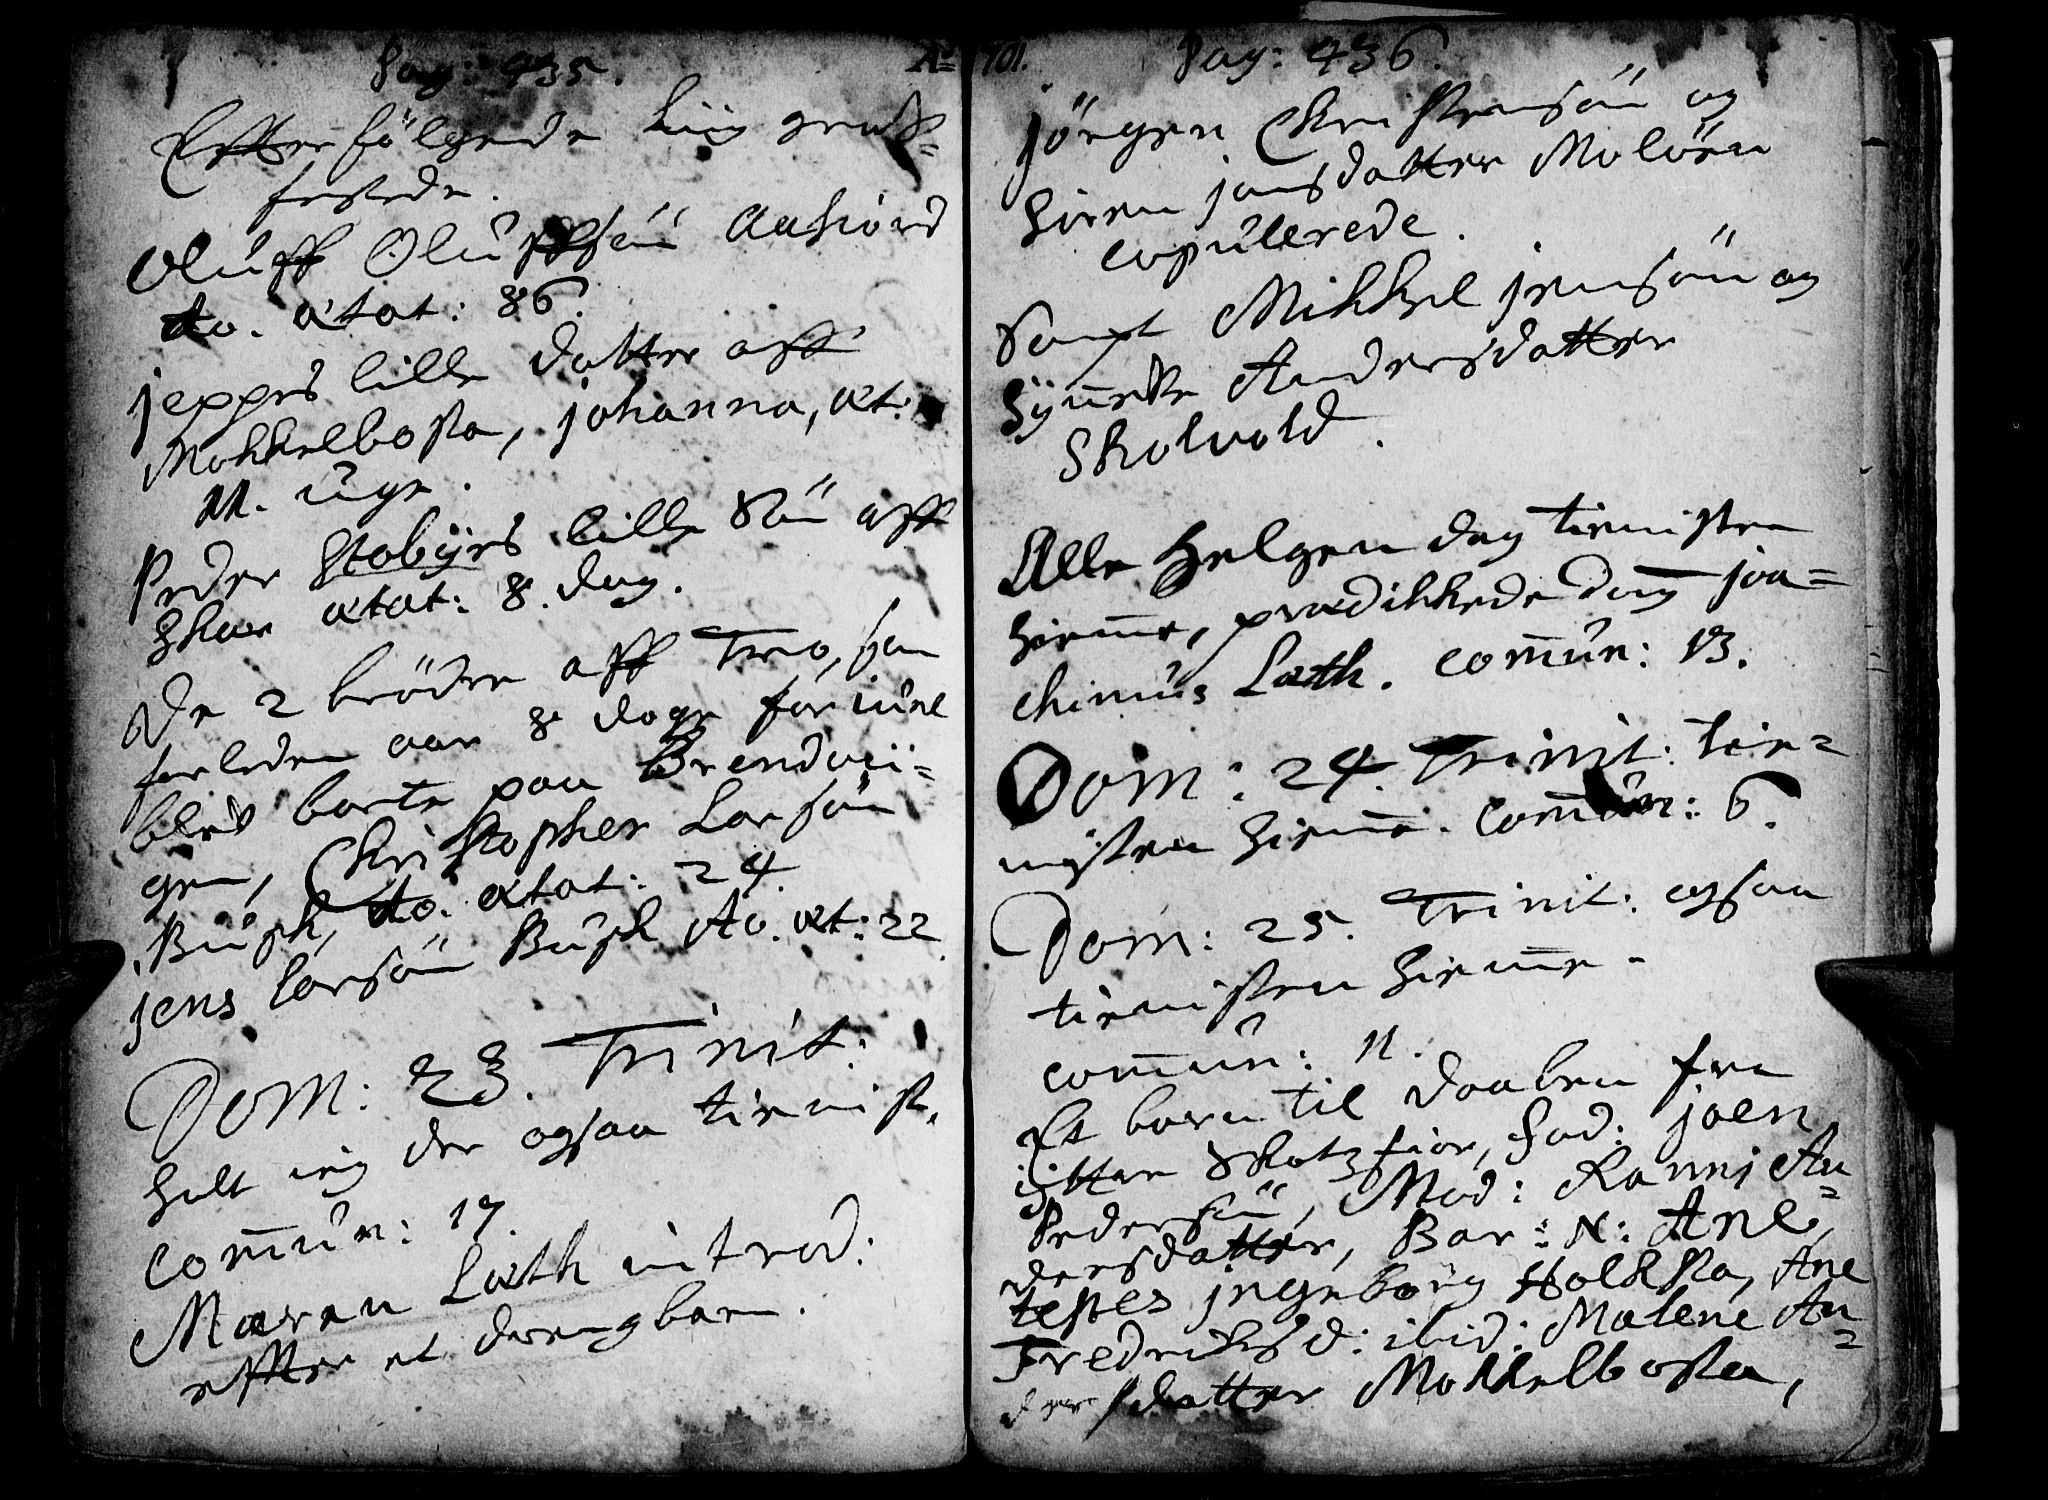 Pag: 435.
Efterfölgende Liig graff=
festede.
Oluff Oluffsøn Aafiord
Ao. ætat: 86.
Jeppes lille datter aff
Mokkelbosta, Johanna, æt:
11. uge.
Peder Stabÿes lille Søn aff
ætat: 8. dag.
De 2 brödre aff Tero, som
forleden aar 8 dage för juul
blef borte paa Brendvii=
gen, Christopher Larsøn
Buch, Ao. ætat: 24.
Jens Larsøn Buch Ao. æt: 22.
Dom: 23. Trinit:
holt ieg der ogsaa tienist.
Com̄un: 17.
Maren Læth introd:
effter et drengbarn.
Ao 701.
Pag: 436.
Jörgen Christensøn og
Siren Jonsdatter Molöen
copulerede.
Sampt Mikkel Jensøn og
Sÿneke Andersdatter
Skolvold.
Alle Helgen dag tienisten
hiem̄e, prædikkede Dom̄ Joa=
chimus Læth. Com̄un: 13.
Dom: 24. Trinit: tie=
nisten hiem̄e. Com̄un: 6.
Dom: 25. Trinit: ogsaa
tienisten hiem̄e.
Com̄un: 11.
Et barn til daaben fra
ÿtter Skotzfior, Fad: Joen
Pedersøn, Mod: Ranni An=
dersdatter, Bar: N: Ane,
testes Ingeborg Holksta, Ane
Fredrichsd: ibid: Malene An=
dersdatter Mokkelbosta,